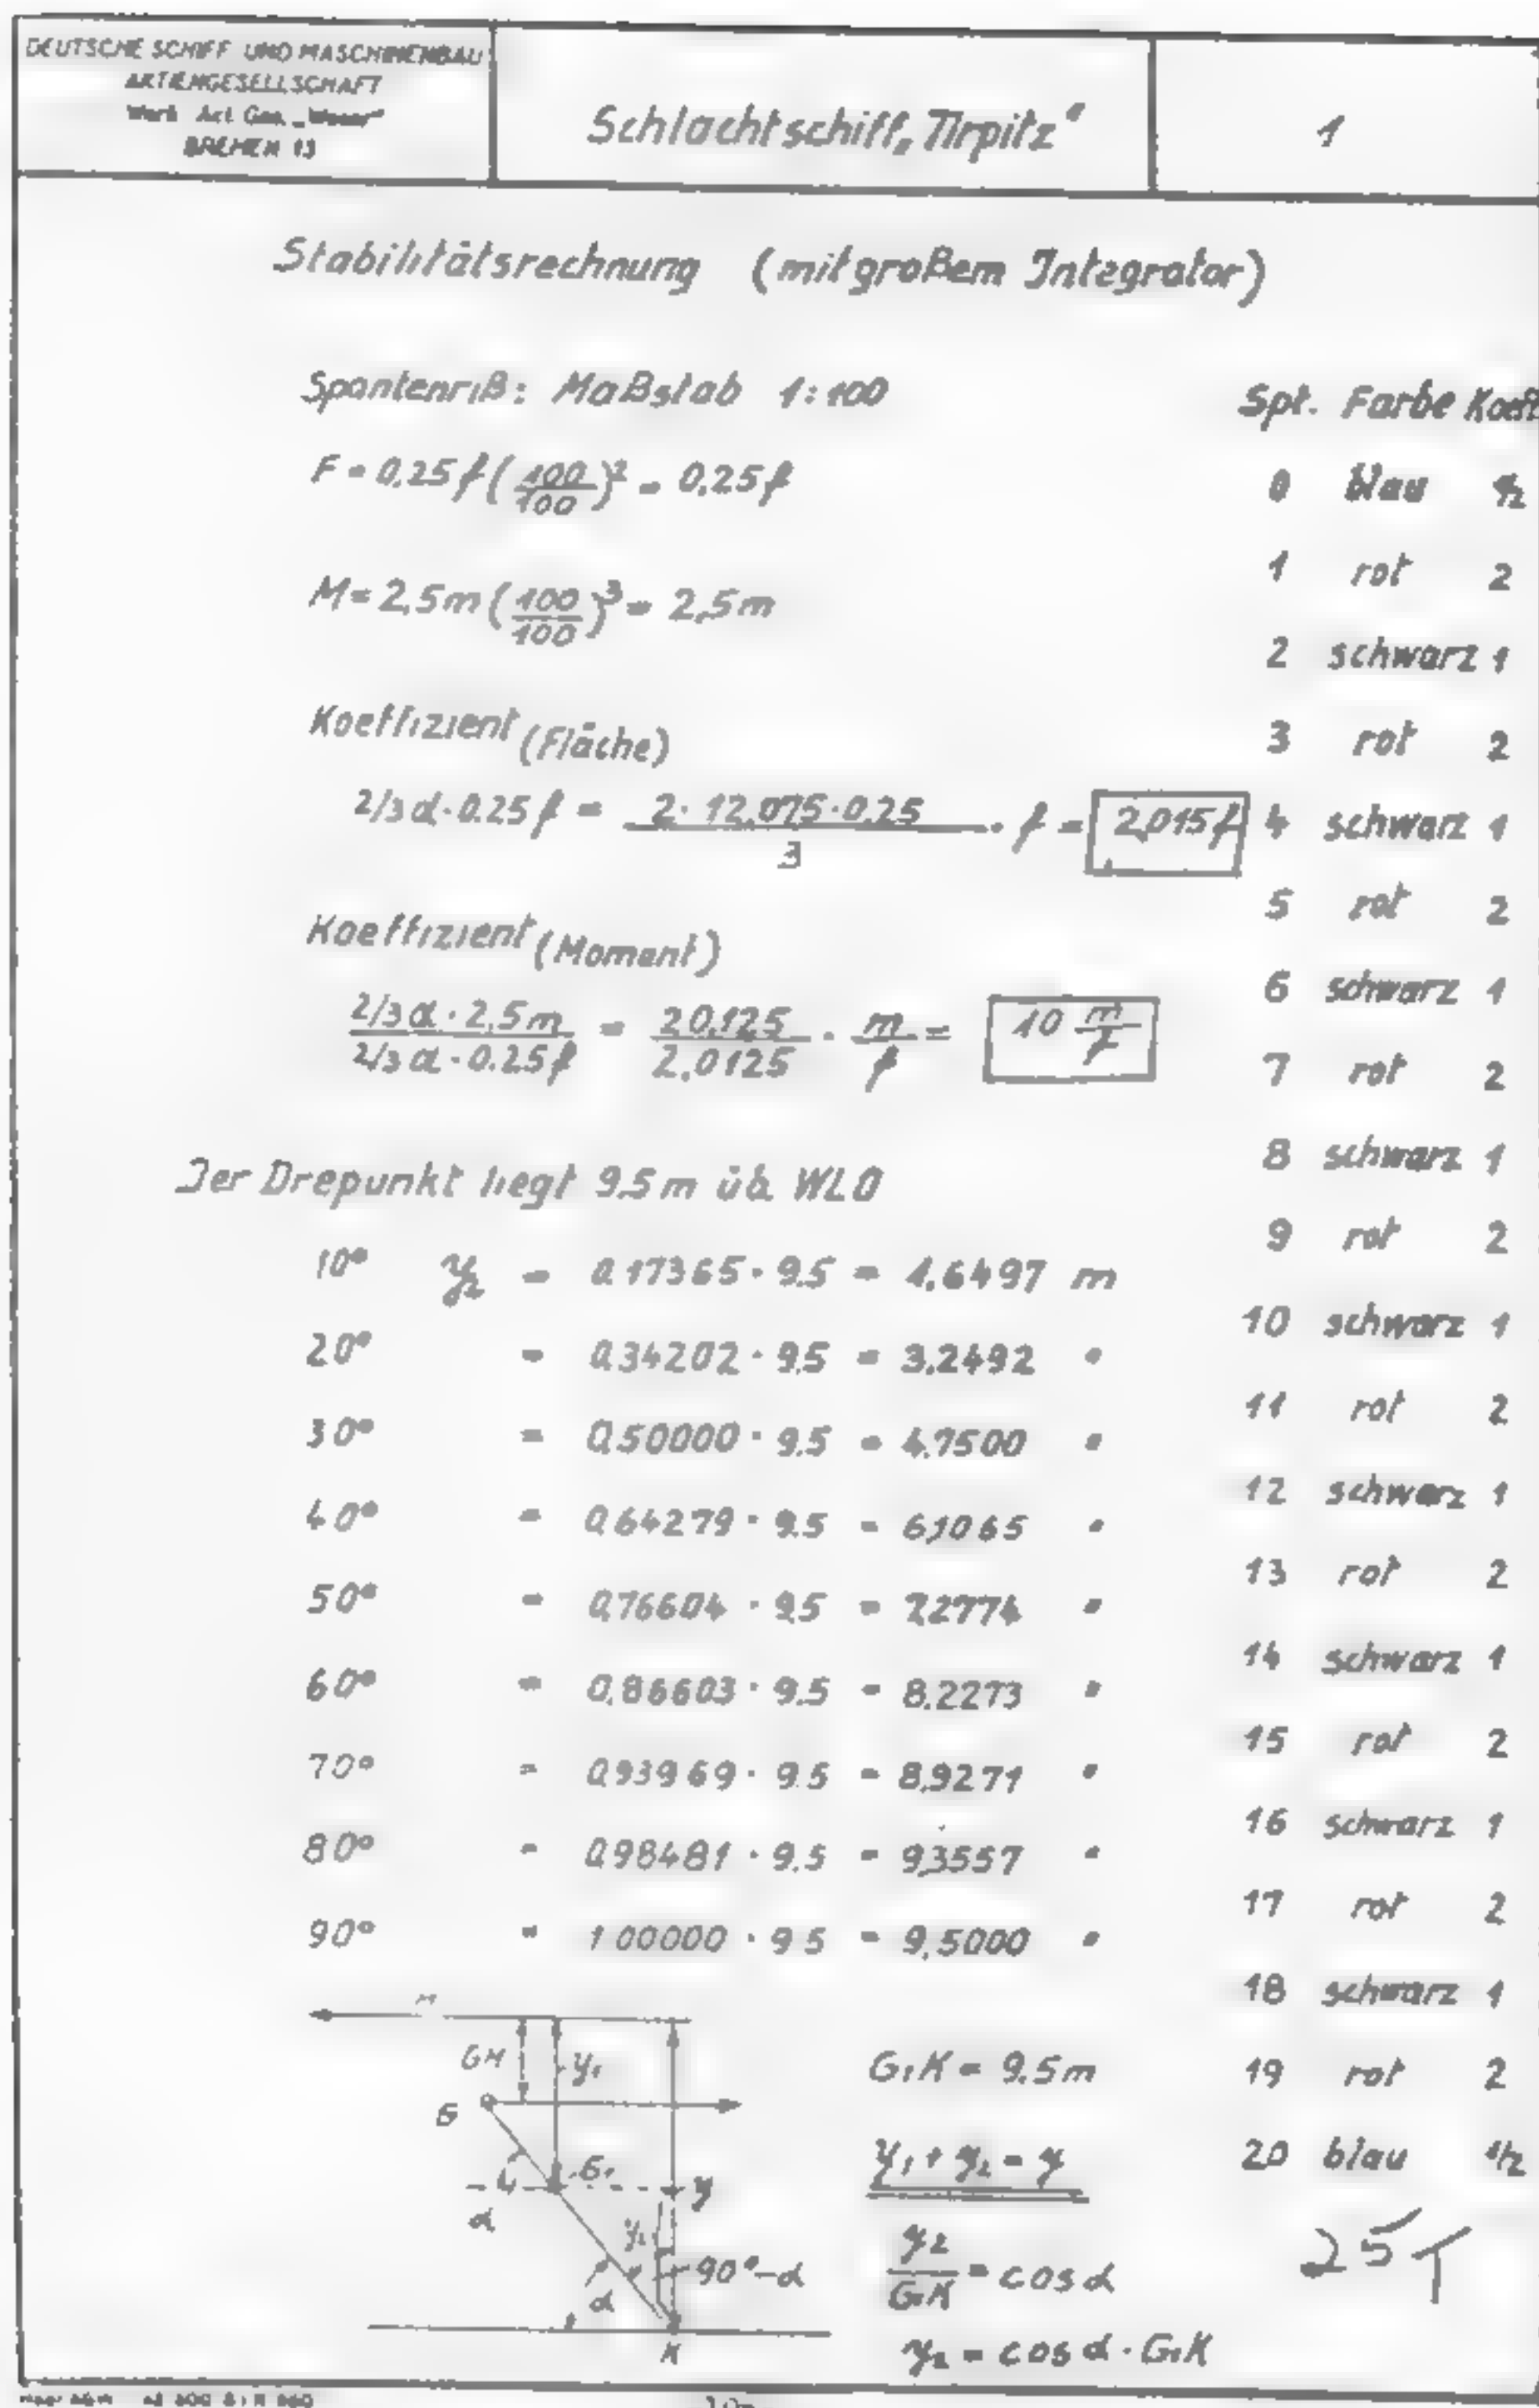 DEUTSCHE SCHIFF UND MASCHINENBAU
AKTIENGESELLSCHAFT
Werk Act. Ges. „Weser"
BREMEN 13
Schlachtschiff „Tirpitz"
1
Stabilitätsrechnung (mit großem Integrator)
Spantenriß: Maßstab 1:100
F = 0,25 f (100/100)² = 0,25 f
M = 2,5 m (100/100)³ = 2,5 m
Koeffizient (Fläche)
2/3 α · 0.25 f = 2 · 12,075 · 0,25 / 3 · f = 2,015 f
Koeffizient (Moment)
2/3 α · 2,5 m / 2/3 α · 0.25 f = 20,125 / 2,0125 · m/f = 10 m/f
Der Drepunkt liegt 9.5 m üb. WL0
10° y₂ = 0,17365 · 9.5 = 1,6497 m
20° = 0,34202 · 9.5 = 3,2492 "
30° = 0,50000 · 9.5 = 4,7500 "
40° = 0,64279 · 9.5 = 6,1065 "
50° = 0,76604 · 9.5 = 7,2774 "
60° = 0,86603 · 9.5 = 8.2273 "
70° = 0,93969 · 9.5 = 8,9271 "
80° = 0,98481 · 9.5 = 9,3557 "
90° = 1 00000 · 9 5 = 9,5000 "
Spt. Farbe Koeff.
0 blau 1/2
1 rot 2
2 schwarz 1
3 rot 2
4 schwarz 1
5 rot 2
6 schwarz 1
7 rot 2
8 schwarz 1
9 rot 2
10 schwarz 1
11 rot 2
12 schwarz 1
13 rot 2
14 schwarz 1
15 rot 2
16 schwarz 1
17 rot 2
18 schwarz 1
19 rot 2
20 blau 1/2
GM
y₁
G
G₁
α
y
y₂
90°-α
α
K
G₁K = 9.5 m
y₁ + y₂ = y
y₂ / G₁K = cos α
y₂ = cos α · G₁K